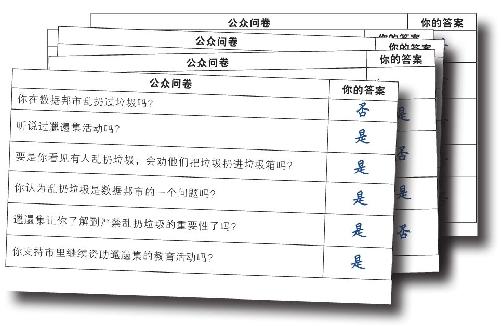 公众问卷 你的答案
公众问卷 你的答案
你的答案
公众问卷 你的答案
公众问卷 你的答案
你在数据邦市乱扔过垃圾吗? 否 是
听说过邋遢集活动吗? 是
要是你看见有人乱扔垃圾,会劝他们把垃圾扔进垃圾箱吗? 是 否
你认为乱扔垃圾是数据邦市的一个问题吗? 是 是
邋遢集让你了解到严禁乱扔垃圾的重要性了吗? 是 否
你支持市里继续资助邋遢集的教育活动吗? 是